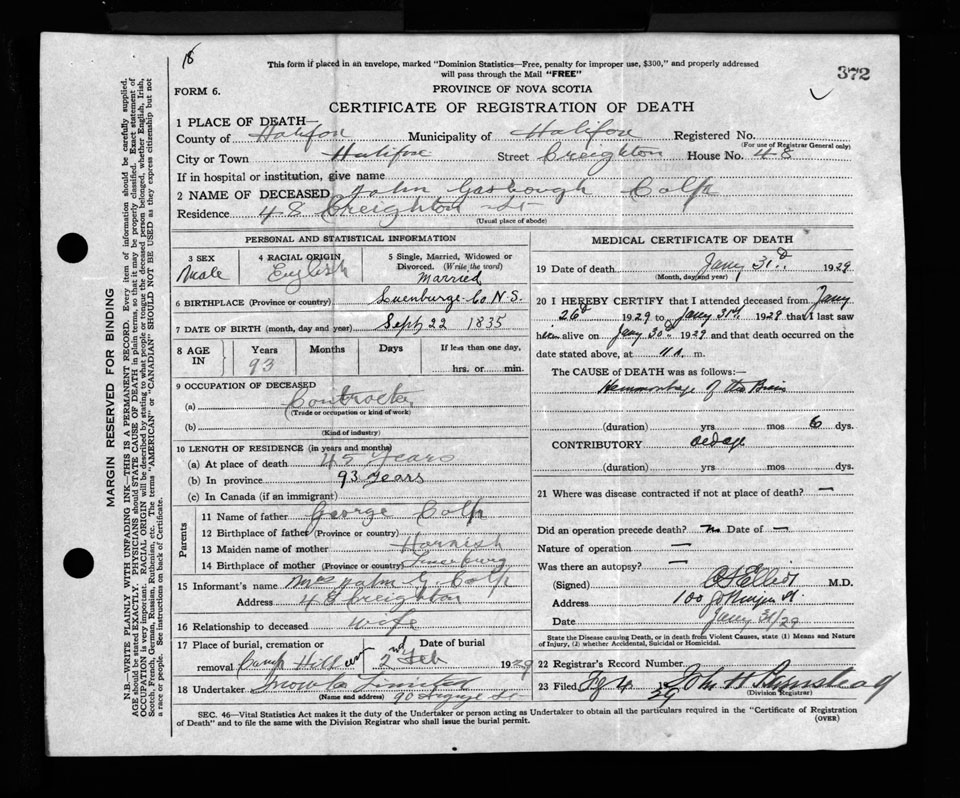 18
This form if placed in an envelope, marked "Dominion Statistics—Free, penalty for improper use, $300," and properly addressed
will pass through the Mail "FREE"
372
FORM 6.
PROVINCE OF NOVA SCOTIA
CERTIFICATE OF REGISTRATION OF DEATH
1 PLACE OF DEATH—
County of Halifax Municipality of Halifax Registered No.
(For use of Registrar General only)
City or Town Halifax Street Creighton House No. 48
If in hospital or institution, give name
2 NAME OF DECEASED John Colp
Residence 48 Creighton St
(Usual place of abode)
PERSONAL AND STATISTICAL INFORMATION
3 SEX Male
4 RACIAL ORIGIN English
5 Single, Married, Widowed or Divorced. (Write the word) Married
6 BIRTHPLACE (Province or country) Luenburge Co N.S.
7 DATE OF BIRTH (month, day and year) Sept 22 1835
8 AGE IN Years 93 Months Days If less than one day, hrs. or min.
9 OCCUPATION OF DECEASED
(a) Contractor
(Trade or occupation or kind of work)
(b)
(Kind of industry)
10 LENGTH OF RESIDENCE (in years and months)
(a) At place of death 45 years
(b) In province 93 years
(c) In Canada (if an immigrant)
Parents
11 Name of father George Colp
12 Birthplace of father (Province or country)
13 Maiden name of mother Harnish
14 Birthplace of mother (Province or country) Lunenburg
15 Informant's name Mrs John G. Colp
Address 48 Creighton
16 Relationship to deceased wife
17 Place of burial, cremation or removal Camp Hill Date of burial 2nd Feb 1929
18 Undertaker Snow Co Limited
(Name and address) 90 Argyle St
MEDICAL CERTIFICATE OF DEATH
19 Date of death Jany 31st 1929
(Month, day and year)
20 I HEREBY CERTIFY that I attended deceased from Jany
26th 1929 to Jany 31st 1929 that I last saw
him alive on Jany 30th 1929 and that death occurred on the
date stated above, at 11 a. m.
The CAUSE OF DEATH was as follows:—
Hemmorhage of the Brain
(duration) yrs mos 6 dys.
CONTRIBUTORY old age
(duration) yrs. mos. dys.
21 Where was disease contracted if not at place of death? —
Did an operation precede death? no Date of —
Nature of operation —
Was there an autopsy? —
(Signed) M.D.
Address 100
Date Jany 31/29
State the Disease causing Death, or in death from Violent Causes, state (1) Means and Nature
of Injury, (2) whether Accidental, Suicidal or Homicidal.
22 Registrar's Record Number
23 Filed 4 1929 John H
(Division Registrar)
SEC. 46—Vital Statistics Act makes it the duty of the Undertaker or person acting as Undertaker to obtain all the particulars required in the "Certificate of Registration
of Death" and to file the same with the Division Registrar who shall issue the burial permit.
(OVER)
MARGIN RESERVED FOR BINDING
N.B.—WRITE PLAINLY WITH UNFADING INK—THIS IS A PERMANENT RECORD. Every item of information should be carefully supplied.
AGE should be stated EXACTLY. PHYSICIANS should STATE CAUSE OF DEATH in plain terms, so that it may be properly classified. Exact statement of
OCCUPATION is very important. RACIAL ORIGIN will be described by stating to what people or tongue the deceased person belonged, whether English, Irish,
Scotch, French, German, Russian, Ruthenian, etc. The terms "AMERICAN" or "CANADIAN" SHOULD NOT BE USED as they express citizenship but not
a race or people. See instructions on back of Certificate.